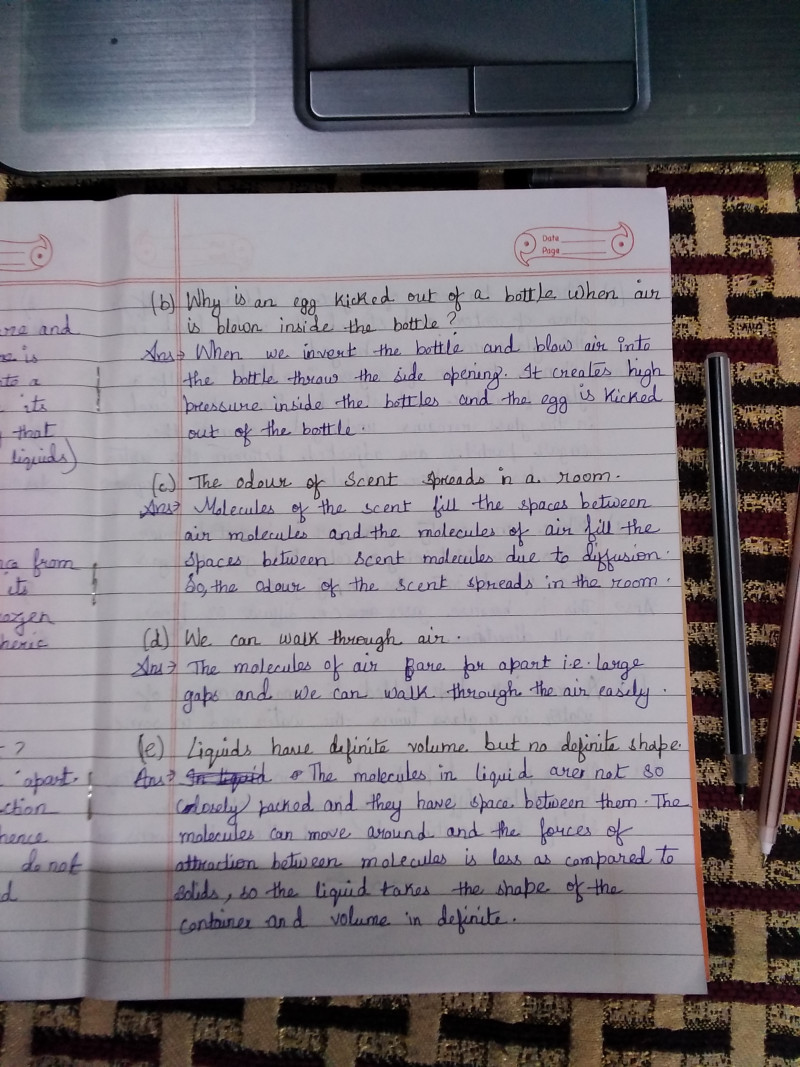 Date
Page
(b) Why is an egg kicked out of a bottle when air
is blown inside the bottle?
Ans⇒ When we invert the bottle and blow air into
the bottle throw the side opening. It creates high
pressure inside the bottles and the egg is kicked
out of the bottle.
(c) The odour of scent spreads in a room.
Ans⇒ Molecules of the scent fill the spaces between
air molecules and the molecules of air fill the
spaces between scent molecules due to diffusion.
So, the odour of the scent spreads in the room.
(d) We can walk through air.
Ans⇒ The molecules of air are far apart i.e. large
gaps and we can walk through the air easily.
(e) Liquids have definite volume but no definite shape.
Ans⇒ In liquid The molecules in liquid are not so
closely packed and they have space between them. The
molecules can move around and the forces of
attraction between molecules is less as compared to
solids, so the liquid takes the shape of the
container and volume in definite.
and
is
to a
its
that
liquids)
from
its
heric
?
apart.
ction
hence
do not
d